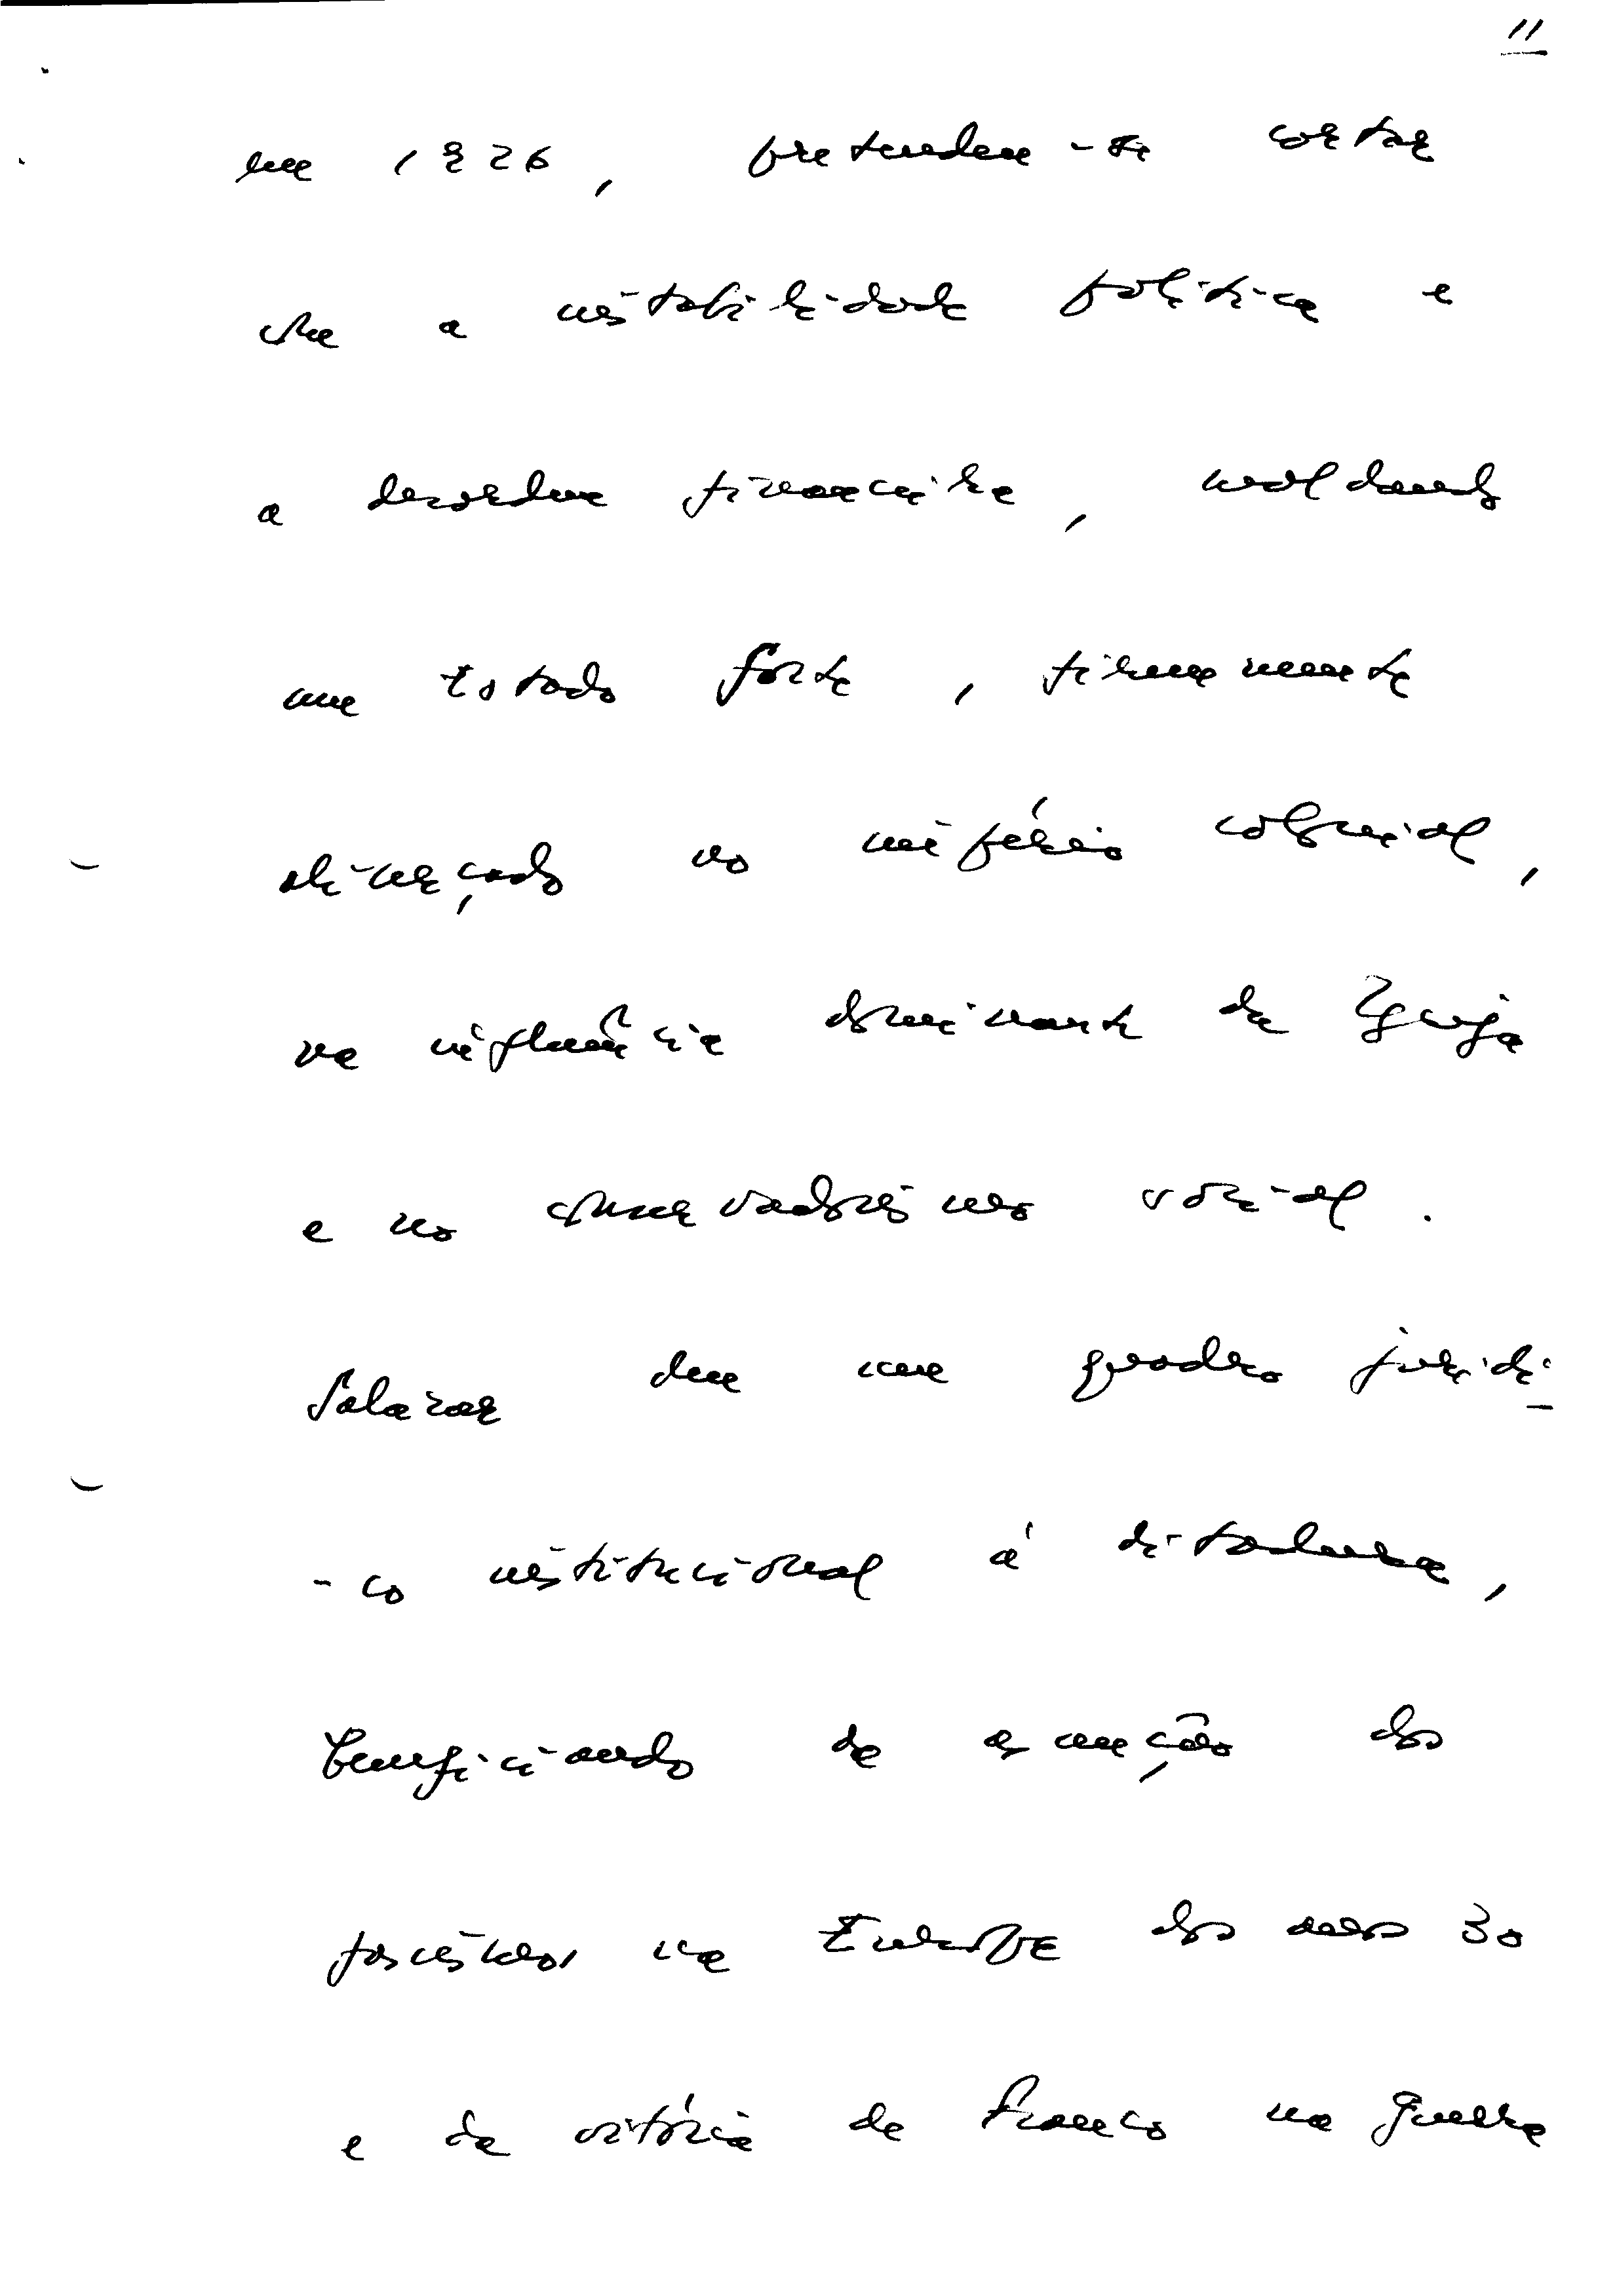 11
em 1926, pretendeu-se cortar
com a instabilidade política e
a desordem financeira, moldando
um Estado forte, firmemente
alicerçado no império colonial,
na influência dominante da Igreja
e no conservadorismo social.
Salazar deu um quadro jurídi-
-co institucional à ditadura,
beneficiando da ascenção dos
fascismos na Europa dos anos 30
e da vitória de Franco na guerra